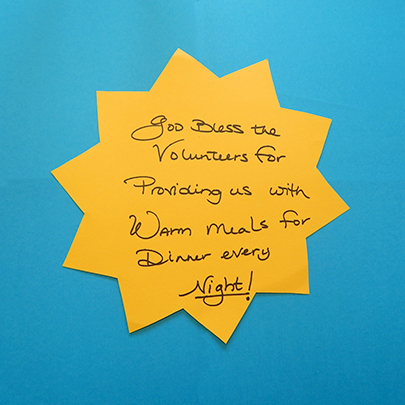 God Bless the
Volunteers for
Providing us with
Warm meals for
Dinner every
Night!